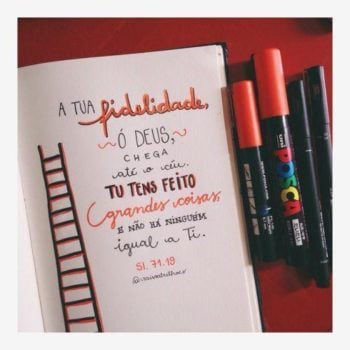 A TUA fidelidade,
Ó DEUS,
CHEGA
até o céu.
TU TENS FEITO
grandes coisas,
E NÃO HÁ NINGUÉM
igual a Ti.
Sl. 71.19
uni
POSCA